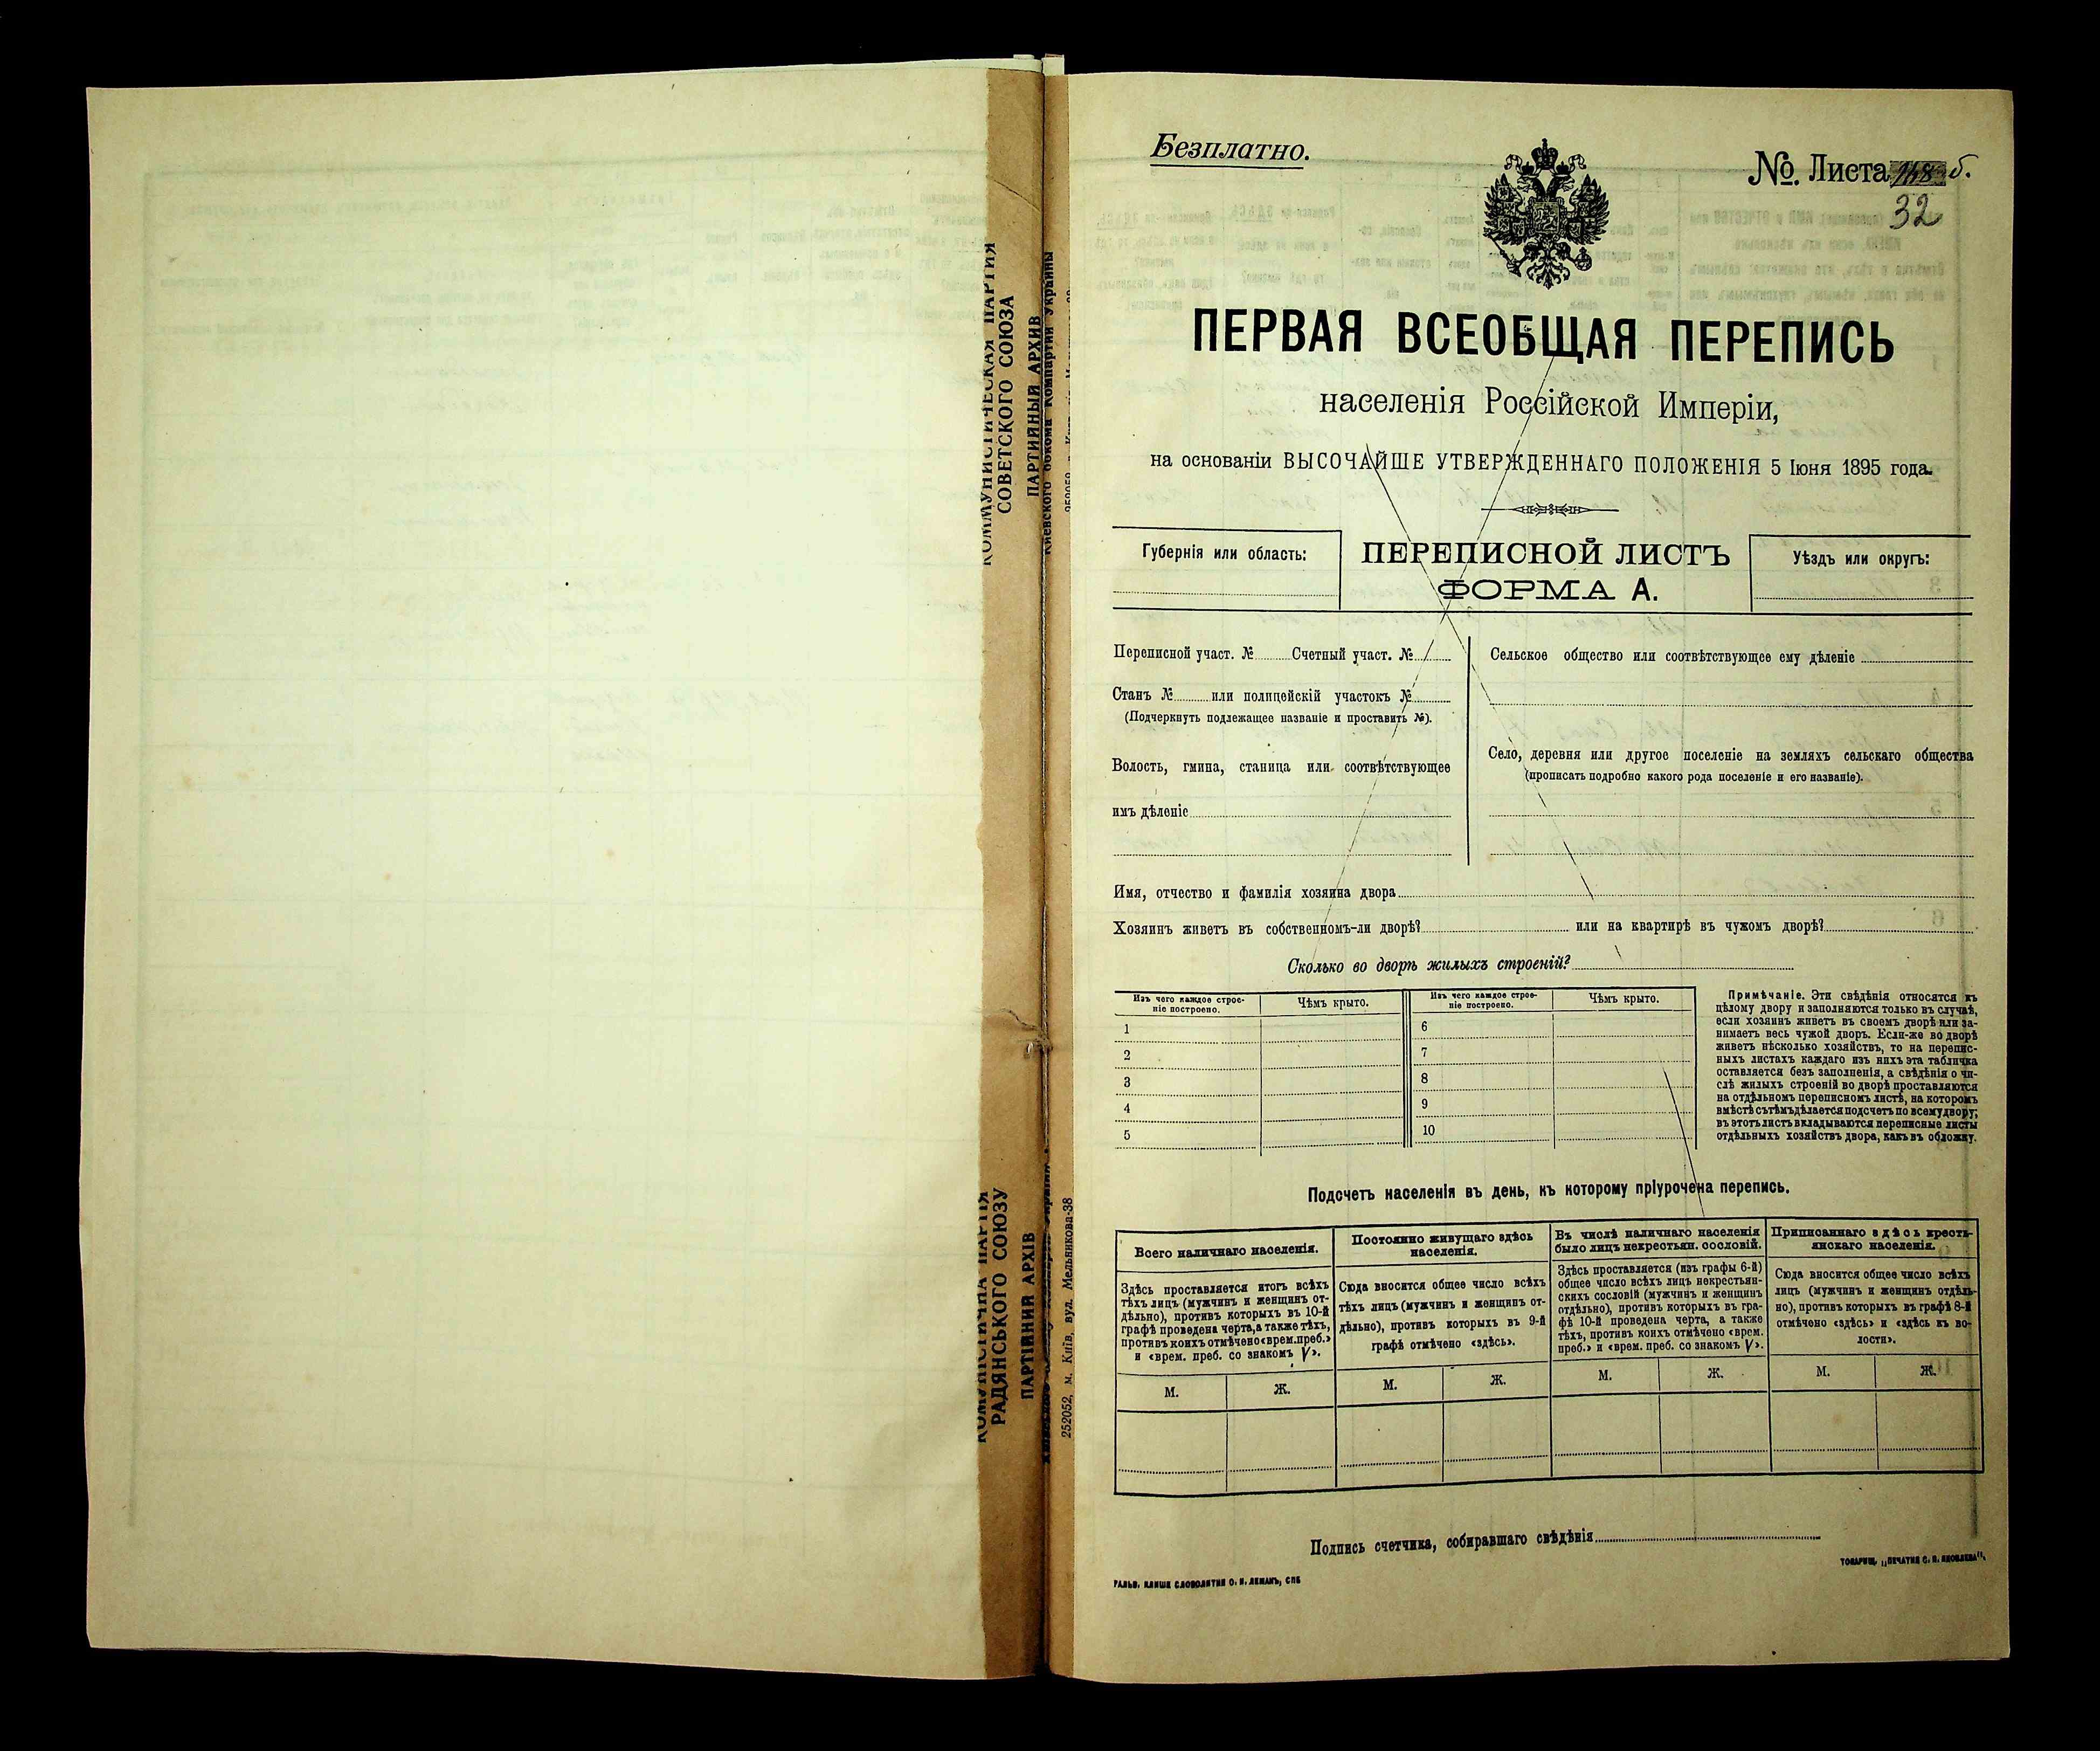 КОММУНИСТИЧЕСКАЯ ПАРТИЯ
СОВЕТСКОГО СОЮЗА
ПАРТИЙНЫЙ АРХИВ
Киевского обкома Компартии Украины
КОМУНІСТИЧНА ПАРТІЯ
РАДЯНСЬКОГО СОЮЗУ
ПАРТІЙНИЙ АРХІВ
252052, м. Київ, вул. Мельникова-38
Безплатно.
№. Листа 148 б.
32
ПЕРВАЯ ВСЕОБЩАЯ ПЕРЕПИСЬ
населенія Россійской Имперіи,
на основаніи ВЫСОЧАЙШЕ УТВЕРЖДЕННАГО ПОЛОЖЕНІЯ 5 Іюня 1895 года.
Губернія или область:
ПЕРЕПИСНОЙ ЛИСТЪ
ФОРМА А.
Уѣздъ или округъ:
Переписной участ. № Счетный участ. №
Станъ № или полицейскій участокъ №
(Подчеркнуть подлежащее названіе и проставить №).
Волость, гмина, станица или соотвѣтствующее
имъ дѣленіе
Сельское общество или соотвѣтствующее ему дѣленіе
Село, деревня или другое поселеніе на земляхъ сельскаго общества
(прописать подробно какого рода поселеніе и его названіе).
Имя, отчество и фамилія хозяина двора
Хозяинъ живетъ въ собственномъ-ли дворѣ? или на квартирѣ въ чужомъ дворѣ?
Сколько во дворѣ жилыхъ строеній?
Изъ чего каждое строе-
ніе построено.
Чѣмъ крыто.
1
2
3
4
5
Изъ чего каждое строе-
ніе построено.
Чѣмъ крыто.
6
7
8
9
10
Примѣчаніе. Эти свѣдѣнія относятся къ
цѣлому двору и заполняются только въ случаѣ,
если хозяинъ живетъ въ своемъ дворѣ или за-
нимаетъ весь чужой дворъ. Если-же во дворѣ
живетъ нѣсколько хозяйствъ, то на перепис-
ныхъ листахъ каждаго изъ нихъ эта табличка
оставляется безъ заполненія, а свѣдѣнія о чи-
слѣ жилыхъ строеній во дворѣ проставляются
на отдѣльномъ переписномъ листѣ, на которомъ
вмѣстѣ съ тѣмъ дѣлается подсчетъ по всему двору;
въ этотъ листъ вкладываются переписные листы
отдѣльныхъ хозяйствъ двора, какъ въ обложку.
Подсчетъ населенія въ день, къ которому пріурочена перепись.
Всего наличнаго населенія.
Здѣсь проставляется итогъ всѣхъ
тѣхъ лицъ (мужчинъ и женщинъ от-
дѣльно), противъ которыхъ въ 10-й
графѣ проведена черта, а также тѣхъ,
противъ коихъ отмѣчено «врем. преб.»
и «врем. преб. со знакомъ V».
М. Ж.
Постоянно живущаго здѣсь
населенія.
Сюда вносится общее число всѣхъ
тѣхъ лицъ (мужчинъ и женщинъ от-
дѣльно), противъ которыхъ въ 9-й
графѣ отмѣчено «здѣсь».
М. Ж.
Въ числѣ наличнаго населенія
было лицъ некрестьян. сословій.
Здѣсь проставляется (изъ графы 6-й)
общее число всѣхъ лицъ некрестьян-
скихъ сословій (мужчинъ и женщинъ
отдѣльно), противъ которыхъ въ гра-
фѣ 10-й проведена черта, а также
тѣхъ, противъ коихъ отмѣчено «врем.
преб.» и «врем. преб. со знакомъ V».
М. Ж.
Приписаннаго здѣсь кресть-
янскаго населенія.
Сюда вносится общее число всѣхъ
лицъ (мужчинъ и женщинъ отдѣль-
но), противъ которыхъ въ графѣ 8-й
отмѣчено «здѣсь» и «здѣсь въ во-
лости».
М. Ж.
Подпись счетчика, собиравшаго свѣдѣнія
ГАЛЬВ. КЛИШЕ СЛОВОЛИТНИ О. И. ЛЕМАНЪ, СПБ
ТОВАРИЩ. „ПЕЧАТНЯ С. П. ЯКОВЛЕВА“.